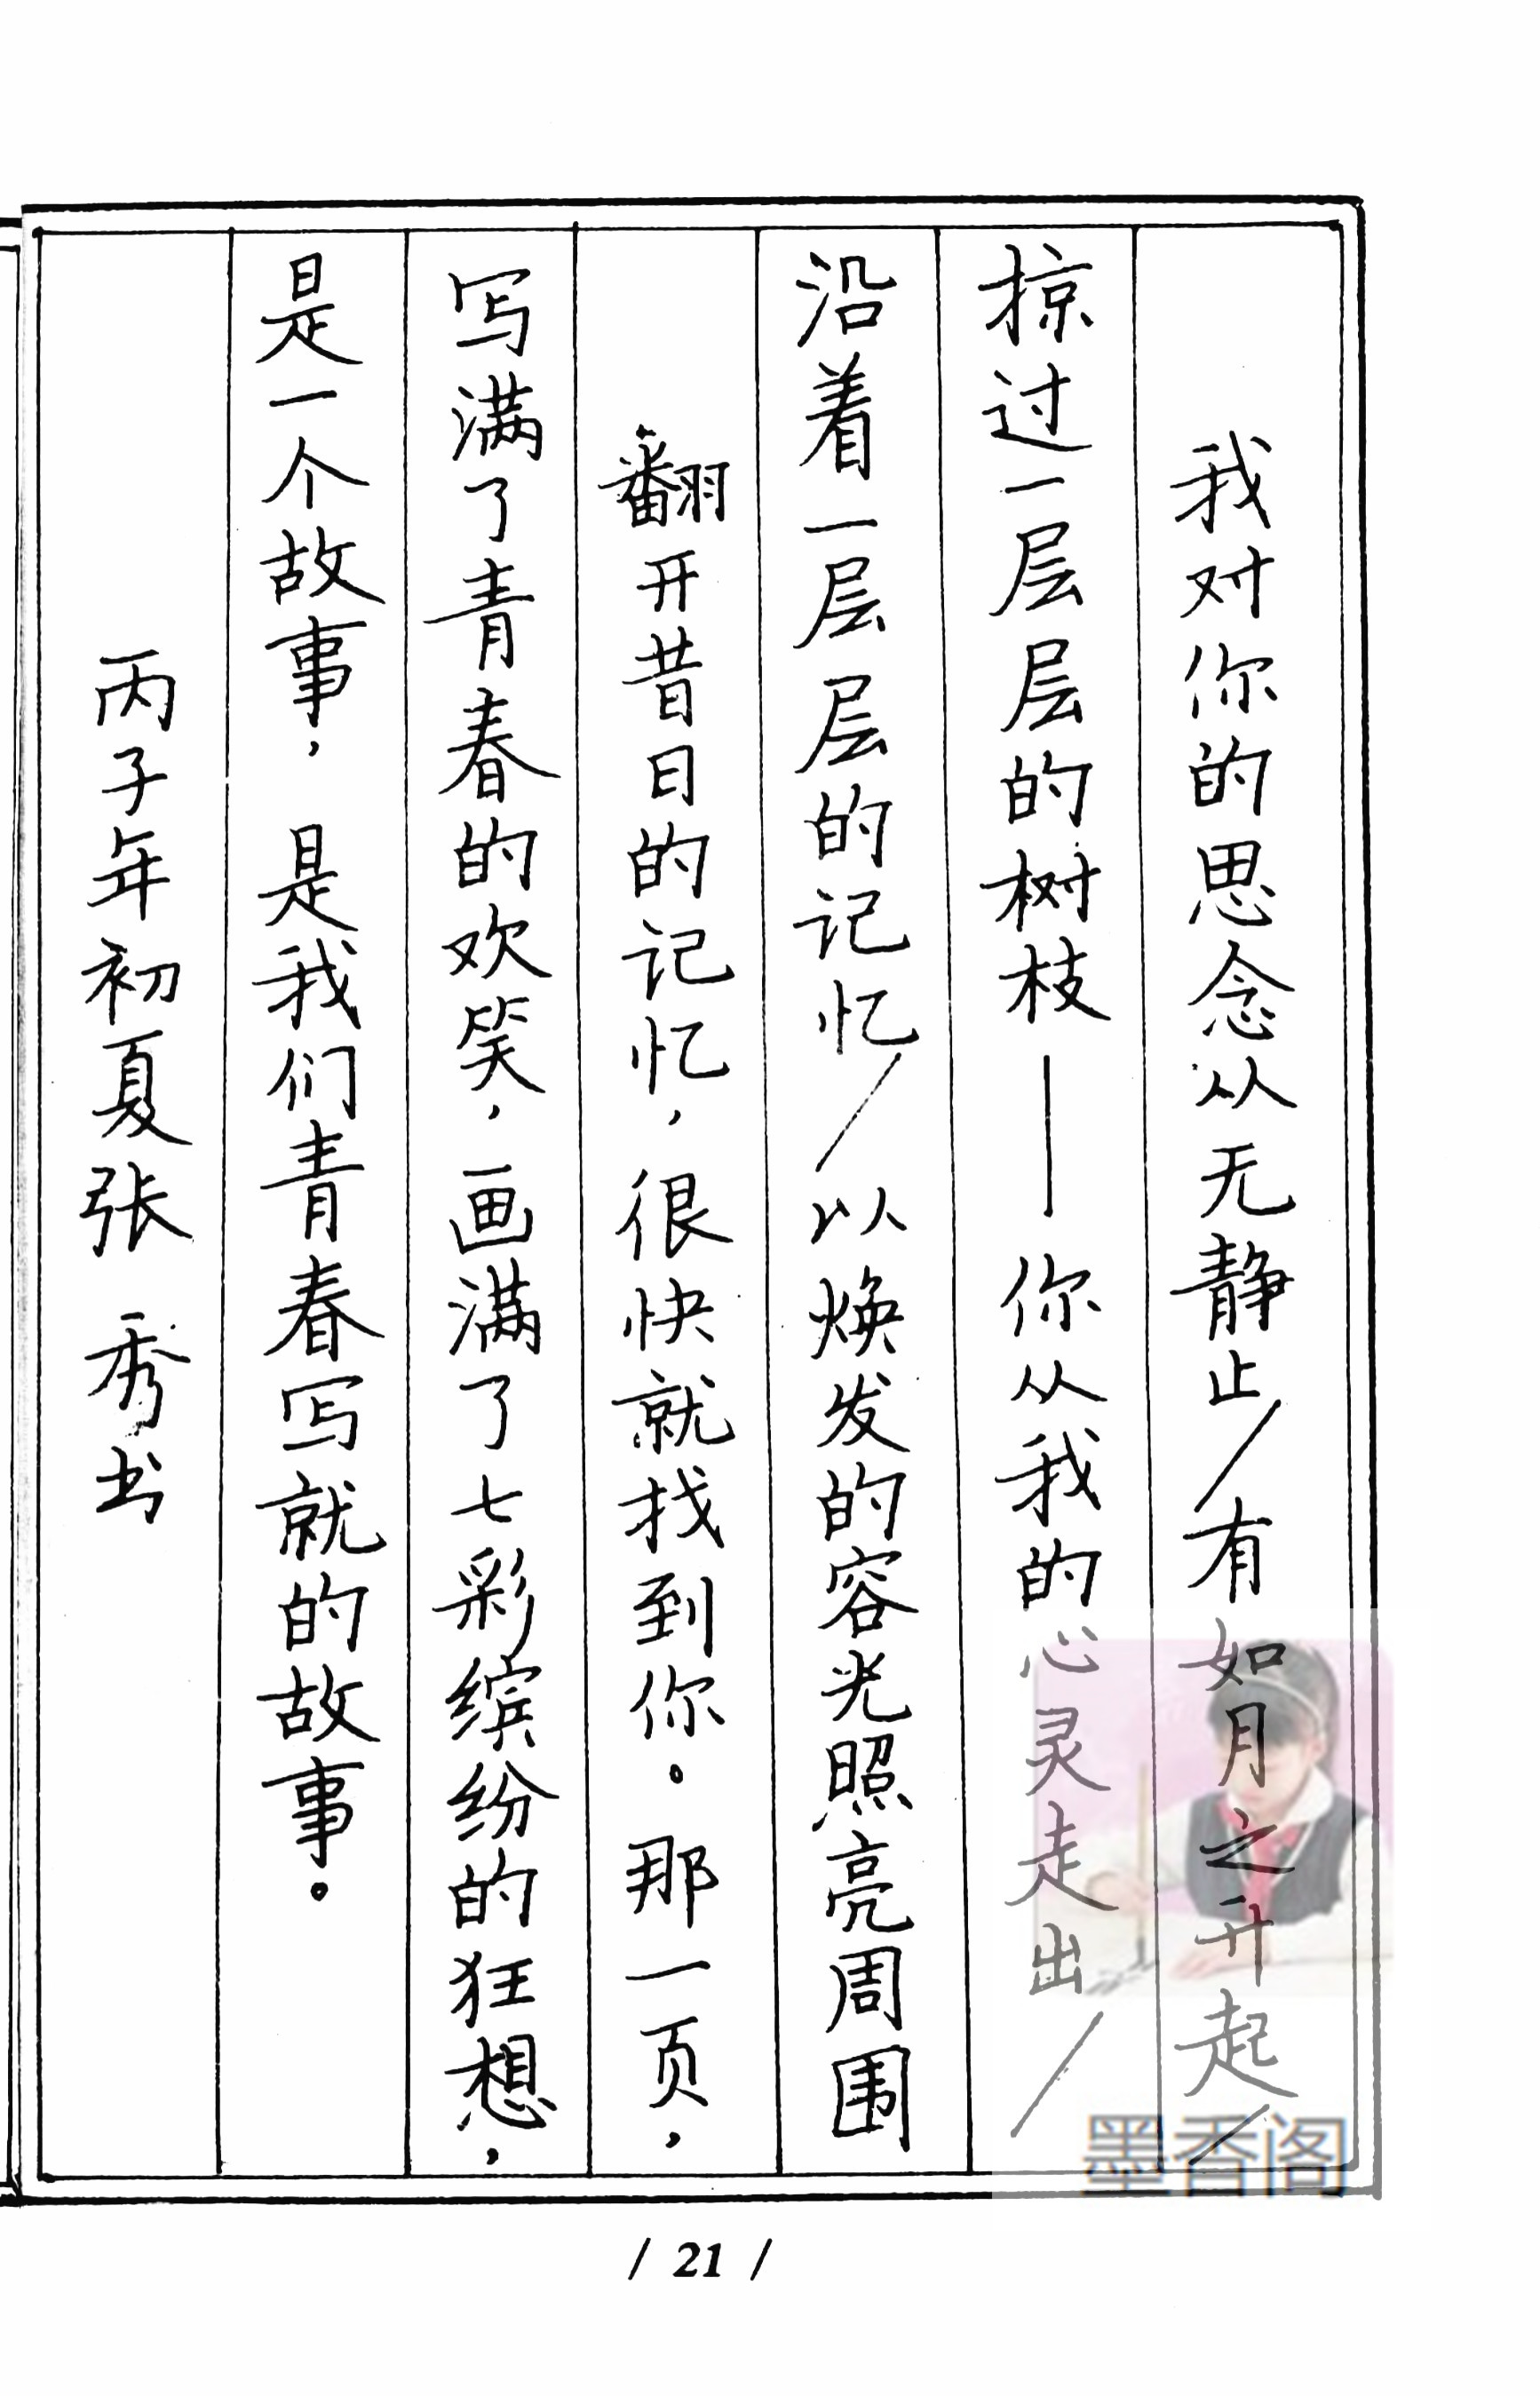 我对你的思念从无静止/有如月之升起/
掠过一层层的树枝—你从我的心灵走出/
沿着一层层的记忆/以焕发的容光照亮周围
翻开昔日的记忆,很快就找到你。那一页,
写满了青春的欢笑,画满了七彩缤纷的狂想,
是一个故事,是我们青春写就的故事。
丙子年初夏张 秀书
墨香阁
/ 21 /